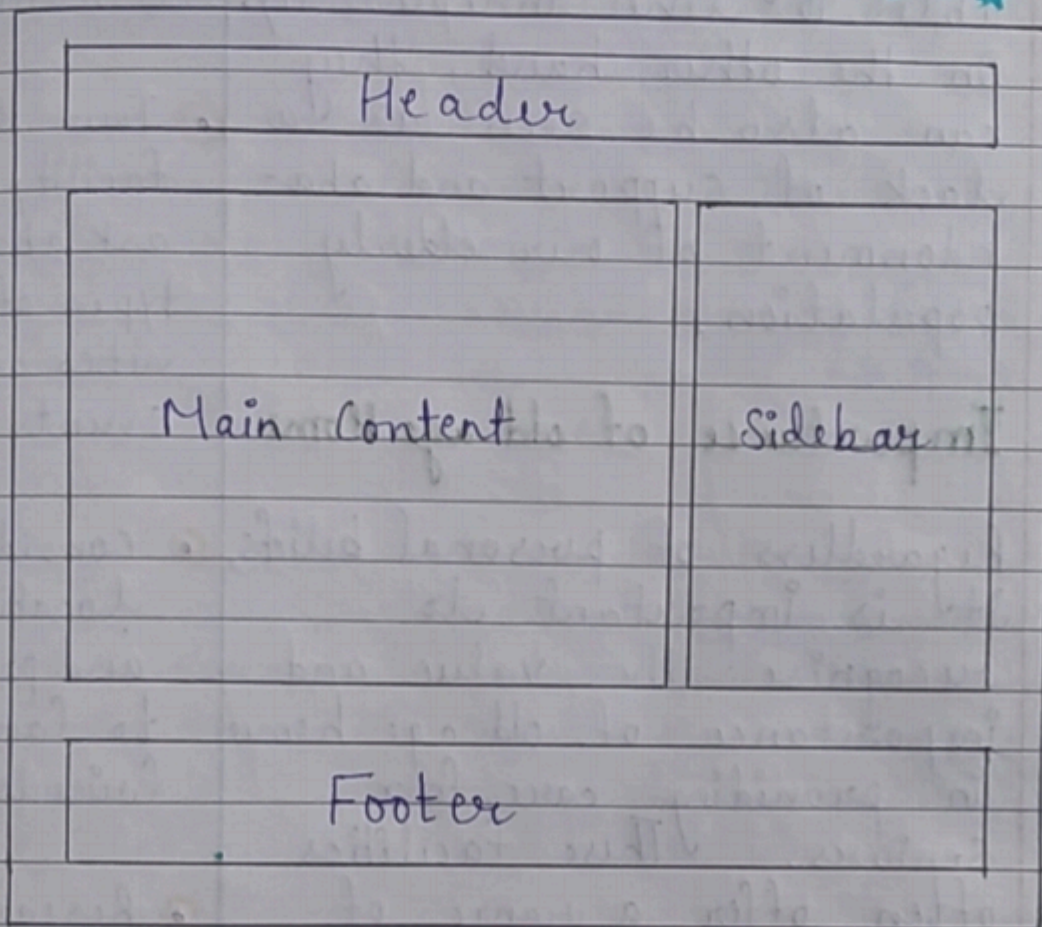 Header
Main Content
Sidebar
Footer